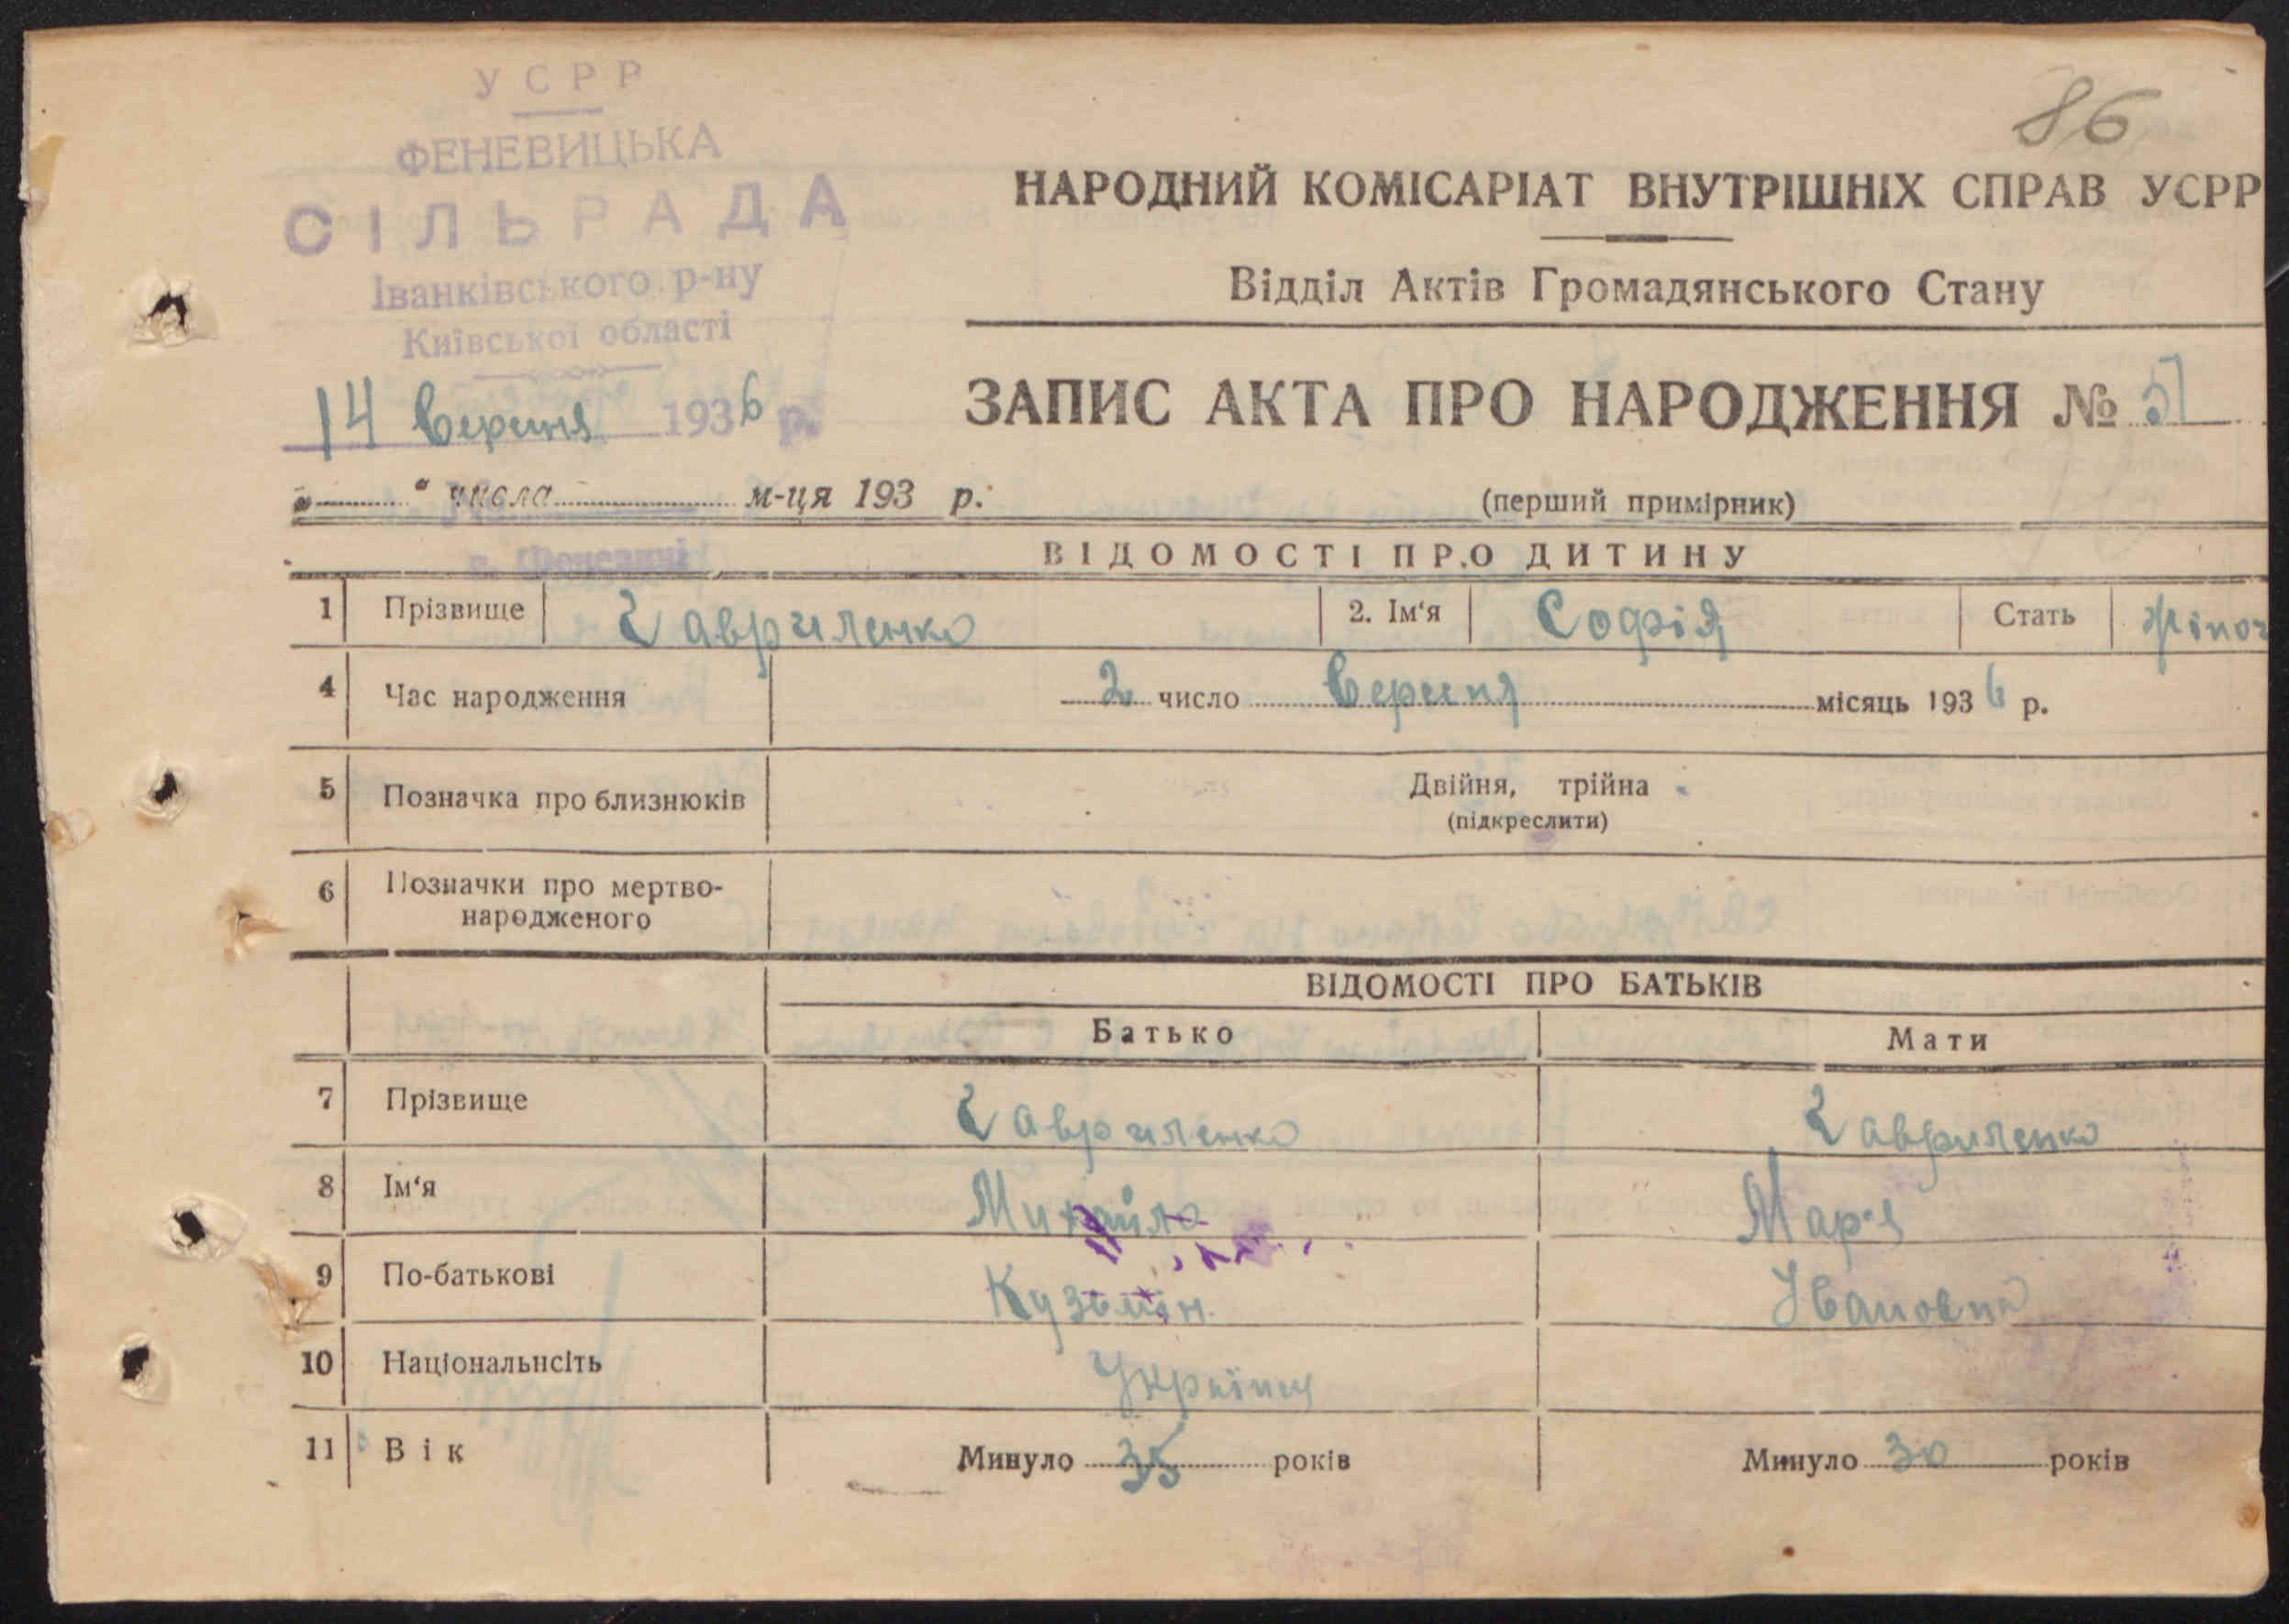 УСРР
86
ФЕНЕВИЦЬКА
СІЛЬРАДА
Іванківського р-ну
Київської області
14 вересня 1936 р.
НАРОДНИЙ КОМІСАРІАТ ВНУТРІШНІХ СПРАВ УСРР
Відділ Актів Громадянського Стану
ЗАПИС АКТА ПРО НАРОДЖЕННЯ № 51
„ “ числа м-ця 193 р.
(перший примірник)
с. Феневичі
ВІДОМОСТІ ПРО ДИТИНУ
1 Прізвище Гавриленко 2. Ім‘я Софія Стать жіноч
4 Час народження 2 число вересня місяць 1936 р.
5 Позначка про близнюків Двійня, трійна
(підкреслити)
6 Позначки про мертво-
народженого
ВІДОМОСТІ ПРО БАТЬКІВ
Батько Мати
7 Прізвище Гавриленко Гавриленко
8 Ім‘я Михайло Мар'я
9 По-батькові Кузьмін. Івановна
10 Національнсіть Українці
11 Вік Минуло 35 років Минуло 30 років